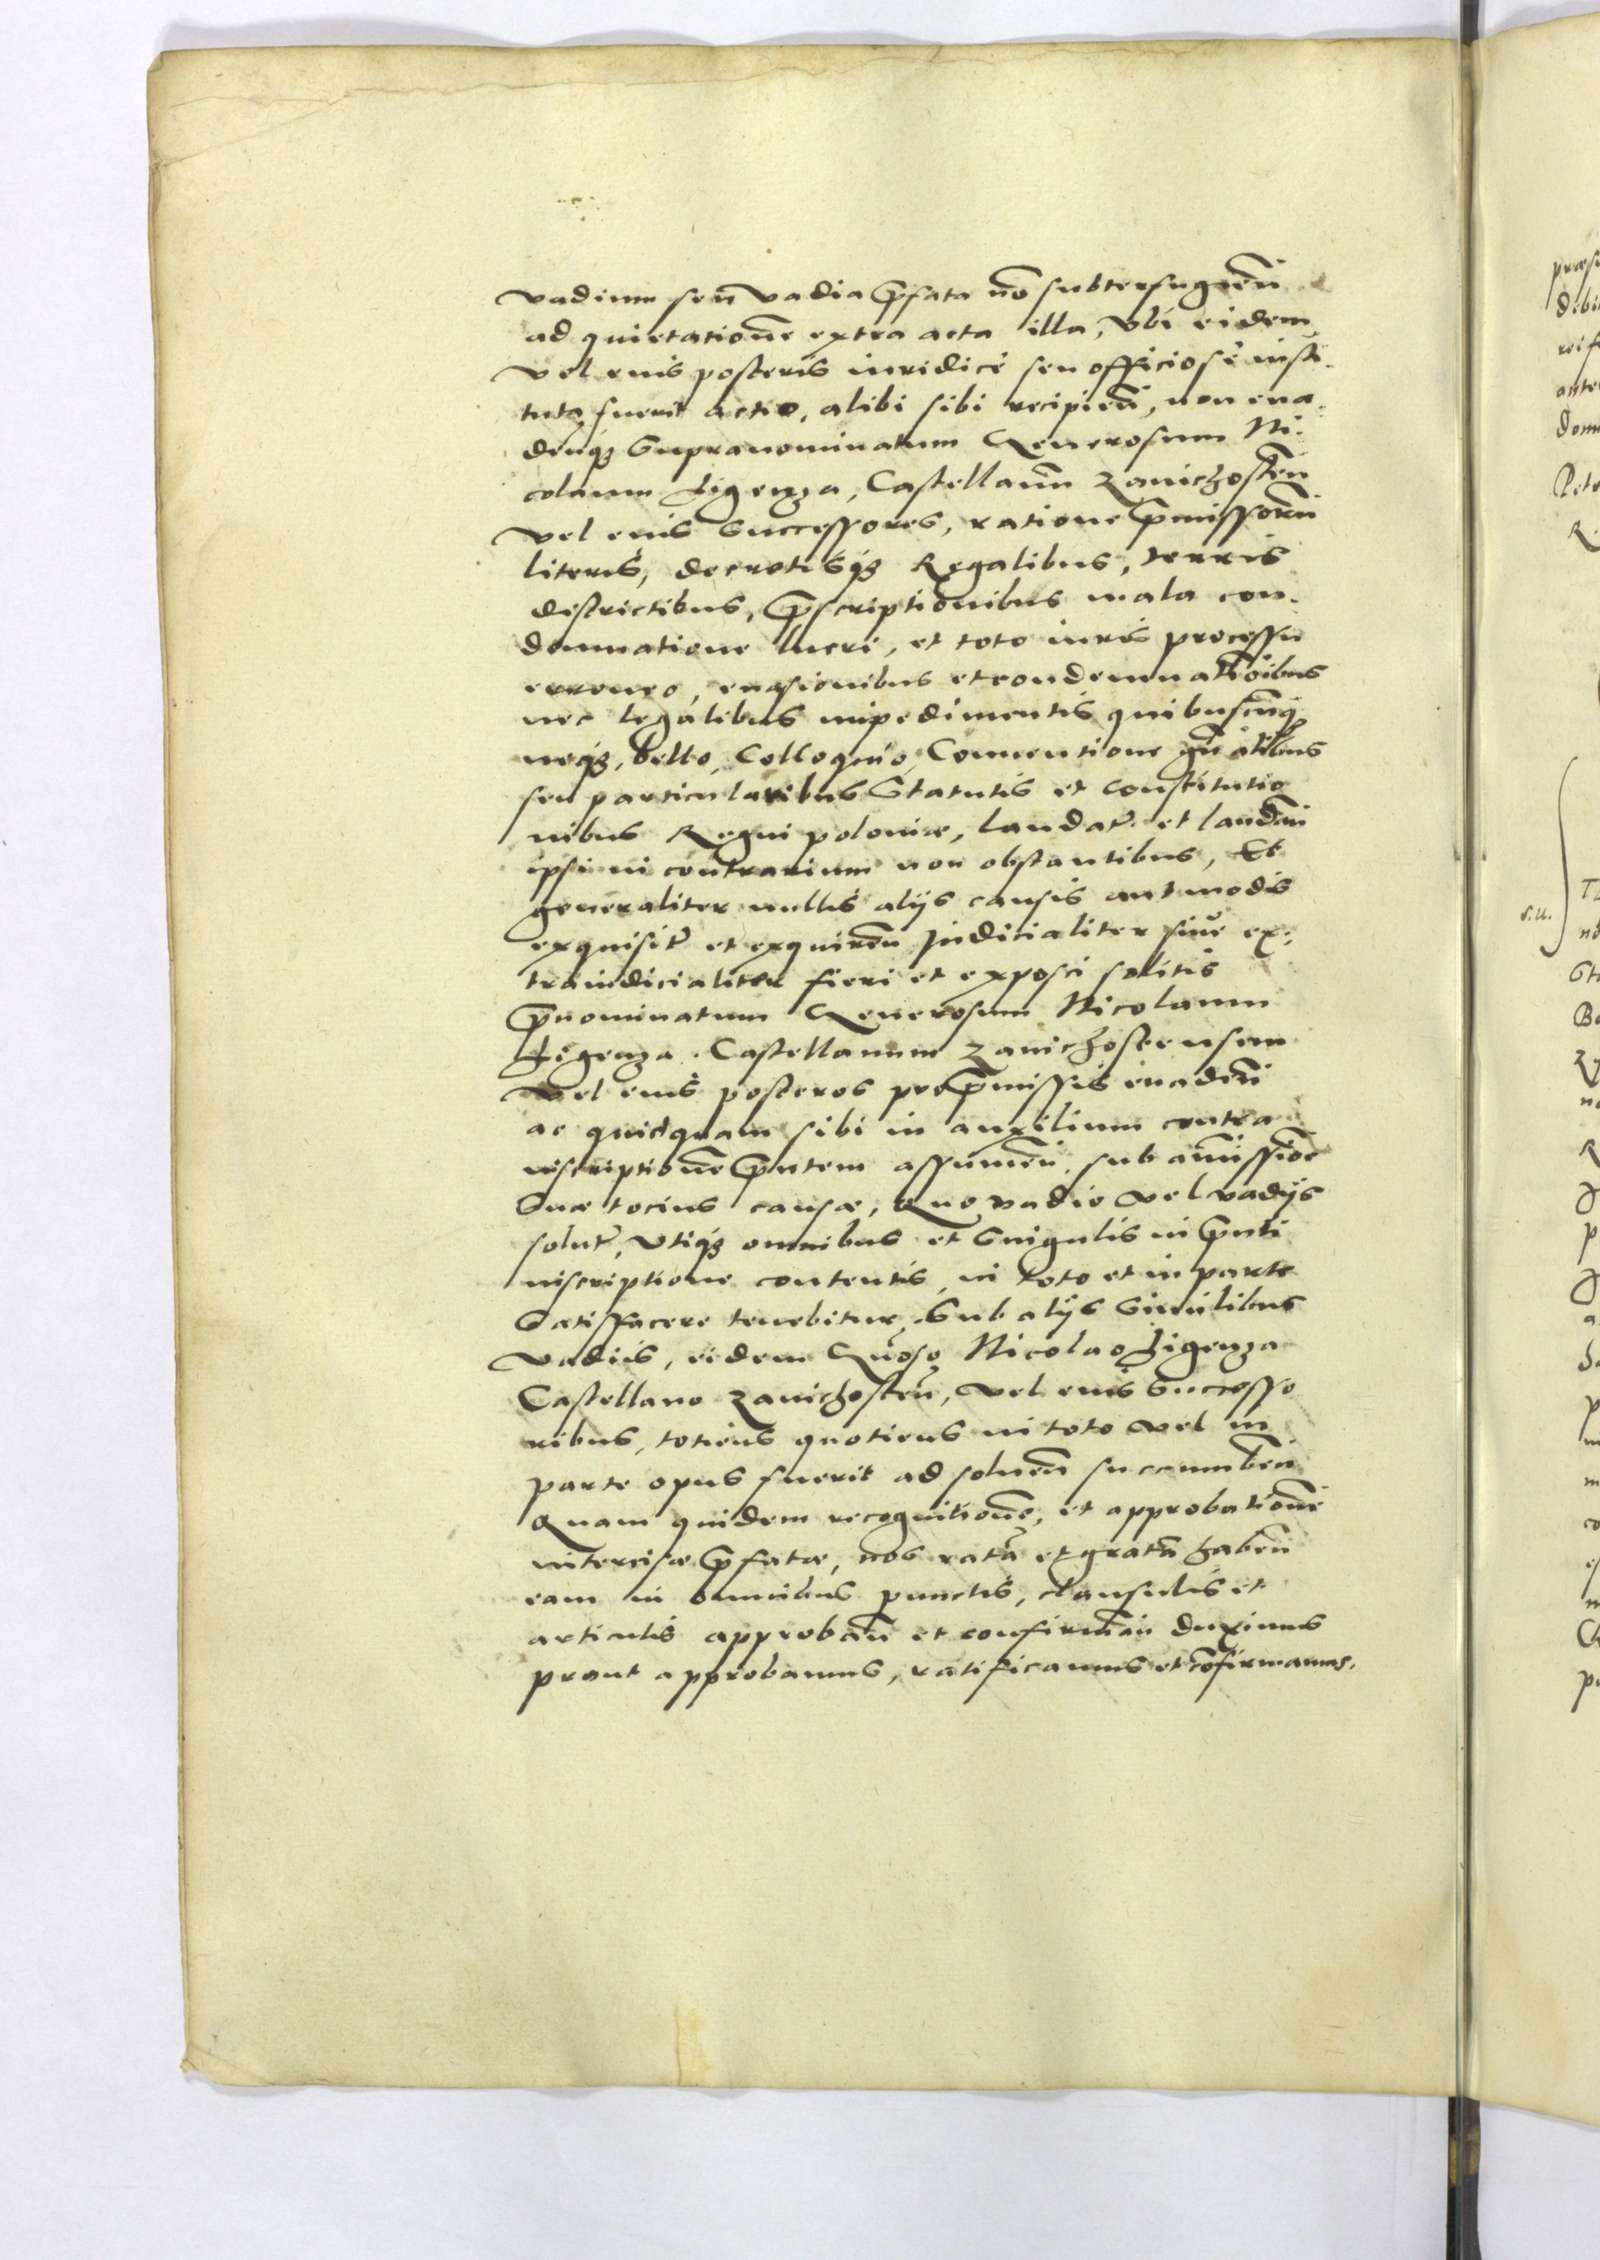 vadium seu vadia p̃fata nõ subterfugieñ
ad quietationẽ extra acta illa, Vbi eidem
vel eius posteris iuridicè seu officiosè insti-
tuta fuerit actio, alibi sibi recipieñ, non eua-
deñqꝫ Supranominatum Generosum Ni-
colaum Ligenza, Castellanũ Zauichosteñ
vel eius Successores, ratione p̃missorũ
literis, decretisqꝫ Regalibus, terris
districtibus, p̃scriptionibus mala con-
demnatione lucri, et toto iuris processu
erroneo, euasionibus et condemnatioĩbus
nec legalibus impedimentis quibuscũqꝫ
neqꝫ, bello, Colloquio, Conuentione gñalibus
seu particularibus Statutis et Constitutio
nibus Regni poloniæ, laudat̃ et laudañ
ipsi in contrarium non obstantibus, Et
generaliter nullis alijs causis aut modis
exquisit̃ et exquireñ Judicialiter siue ex-
traiudicialiter fieri et exposci solitis
p̃nominatum Generosum Nicolaum
Ligenza Castellanum Zauichostensem
vel eius posteros pro p̃missis euadeñ
ac quidquam sibi in auxilium contra
inscriptionẽ p̃ntem assumeñ, sub amissiõe
Suæ tocius causæ, Quo vadio vel vadijs
solut̃, Vtiqꝫ omnibus et Singulis in p̃nti
inscriptione contentis, in toto et in parte
Satisfacere tenebitur, Sub alijs Similibus
vadiis, eidem Gñoso Nicolao Ligenza
Castellano Zauichosteñ, vel eius Successo
ribus, totiens quotiens in toto vel in
parte opus fuerit ad solueñ succumbeñ
Quam quidem recognitionẽ, et approbationẽ
intercisæ p̃fatæ, nos ratã et gratã habeñ
eam in omnibus punctis, clausulis et
articulis approbañ et confirmañ duximus
prout approbamus, ratificamus et cõfirmamus.